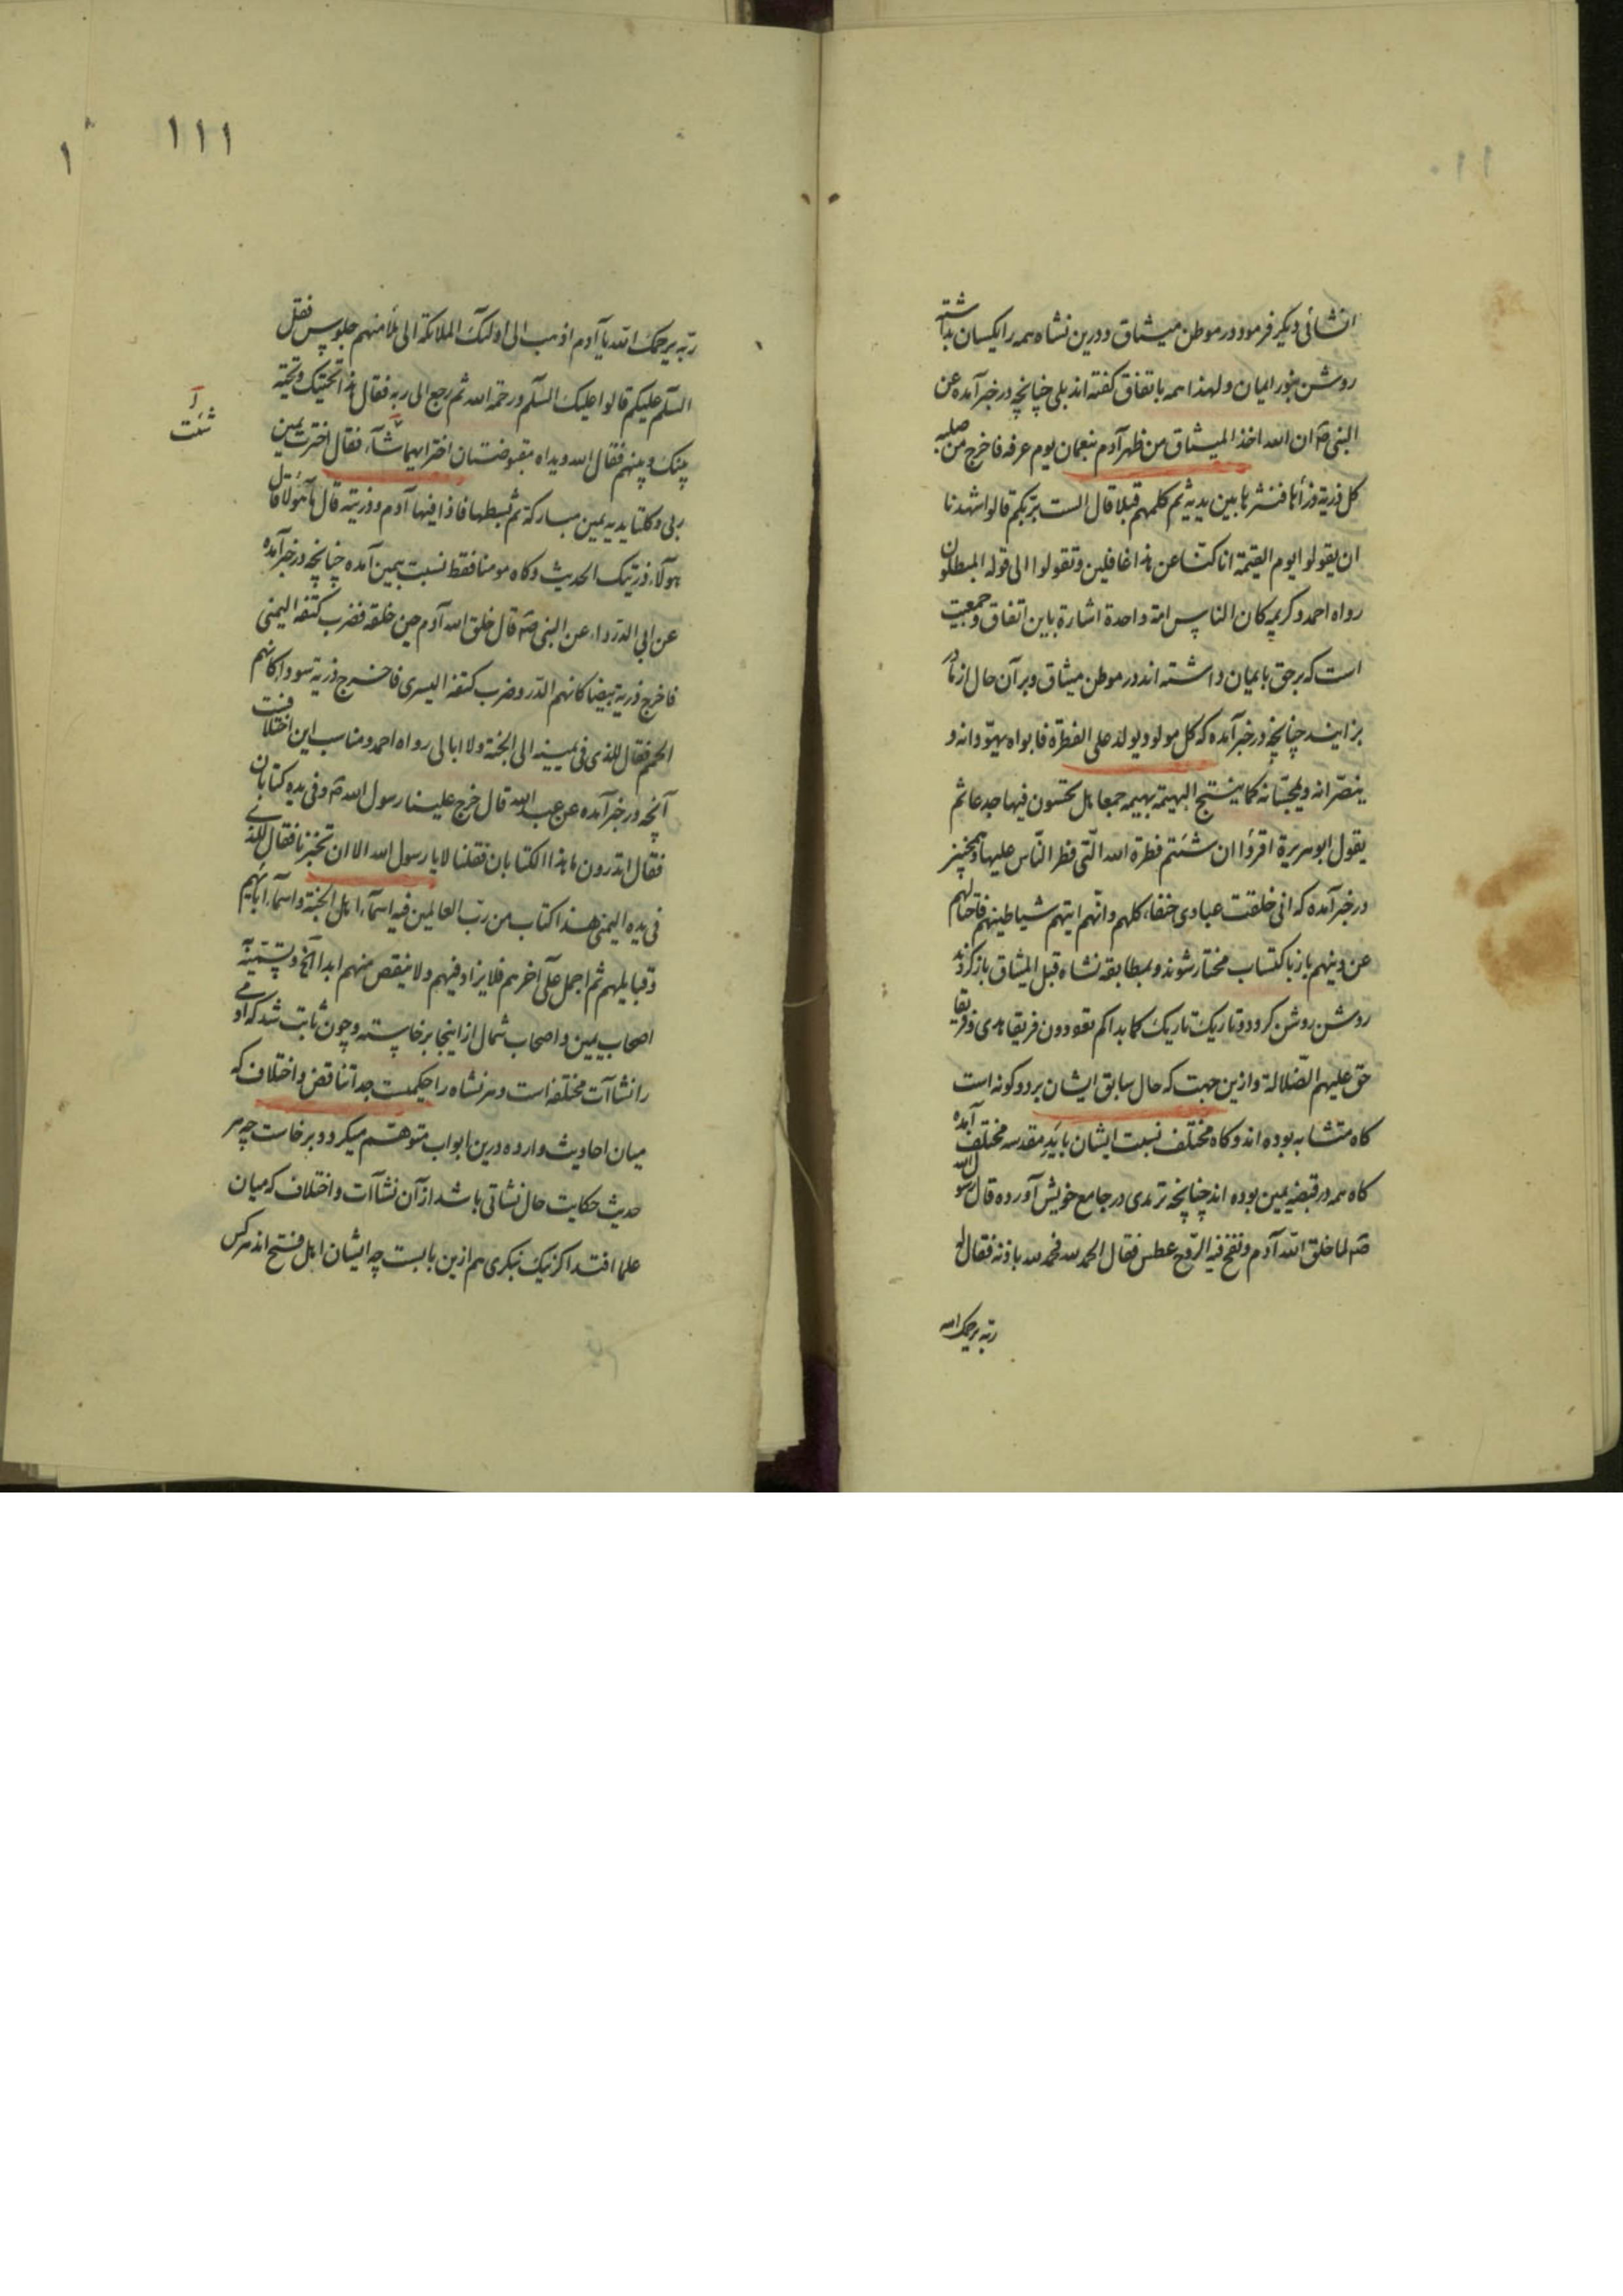 ۱۱۰
انشائی دیگر فرمود در موطن میثاق و درین نشاه همه را یکسان بداشته
روشن بنور ایمان و لهذا همه باتفاق گفته اند بلی چنانچه در خبر آمده عن
النبی صم ان الله اخذ المیثاق من ظهر آدم بنعمان یوم عرفه فاخرج من صلبه
کل ذریة ذرأها فنشرها بین یدیه ثم کلمهم قبلا قال الست بربکم قالوا شهدنا
ان یقولوا یوم القیمة انا کنا عن هذا غافلین و تقولوا الی قوله المبطلون
رواه احمد و کریمه کان الناس امة واحدة اشارة باین اتفاق و جمعیت
است که بر حق بایمان داشته اند در موطن میثاق و بر آن حال از مادر
بزایند چنانچه در خبر آمده که کل مولود یولد علی الفطرة فابواه یهودانه و
ینصرانه و یمجسانه کما ینتج البهیمة بهیمه جمعا هل تحسون فیها جدعا ثم
یقول ابو هریرة اقرؤا ان شئتم فطرة الله التی فطر الناس علیها و همچنین
در خبر آمده که انی خلقت عبادی حنفاء کلهم و انهم اتیهم شیاطینهم فاحتالهم
عن دینهم باز باکتساب مختار شوند و بمطابقه نشاه قبل المیثاق باز گردند
روشن روشن گردد و تاریک تاریک کما بداکم تعودون فریقا هدی و فریقا
حق علیهم الضلالة و ازین جهت که حال سابق ایشان بر دو گونه است
گاه متشابه بوده اند و گاه مختلف نسبت ایشان باید مقدسه مختلف آمده
گاه همه در قبضه یمین بوده اند چنانچه ترمذی در جامع خویش آورده قال رسول الله
صم لما خلق الله آدم و نفخ فیه الروح عطس فقال الحمد لله فحمد لله باذنه فقال له
ربه یرحمک الله
۱۱۱
۱
ربه یرحمک الله یا آدم اذهب الی اولئک الملائکة الی ملأ منهم جلوس فقل
السلم علیکم قالوا علیک السلم و رحمة الله ثم رجع الی ربه فقال هذا تحیتک و تحیة
بینک و بینهم فقال الله و یداه مقبوضتان اختر ایهما شآء فقال اخترت یمین
شئت
ربی و کلتا یدیه یمین مبارکة ثم بسطها فاذا فیها آدم و ذریته قال ما هؤلاء قال
هؤلاء ذریتک الحدیث و گاه مومنا فقط نسبت بیمین آمده چنانچه در خبر آمده
عن ابی الدرداء عن النبی صم قال خلق الله آدم حین خلقه فضرب کتفه الیمنی
فاخرج ذریة بیضا کانهم الدر و ضرب کتفه الیسری فاخرج ذریة سوداء کانهم
الحمم فقال للذی فی یمینه الی الجنة و لا ابالی رواه احمد و مناسب این اختلافست
آنچه در خبر آمده عن عبد الله قال خرج علینا رسول الله صم و فی یده کتابان
فقال اتدرون ما هذا الکتابان فقلنا لا یا رسول الله الا ان تخبرنا فقال للذی
فی یده الیمنی هذا کتاب من رب العالمین فیه اسمآء اهل الجنة و اسمآء ابآئهم
و قبایلهم ثم اجمل علی آخرهم فلا یزاد فیهم و لا ینقص منهم ابدا الخ و تسمیة
اصحاب یمین و اصحاب شمال از اینجا برخاسته و چون ثابت شد که آدمی
را نشاآت مختلفه است و هر نشاه را حکمیست جدا تناقض و اختلاف که
میان احادیث وارده درین ابواب متوهم میگردد برخاست چه هر
حدیث حکایت حال نشاتی باشد از آن نشاآت و اختلاف که میان
علما افتد اگر نیک نبگری هم ازین بابست چه ایشان اهل فتح اند هر کس